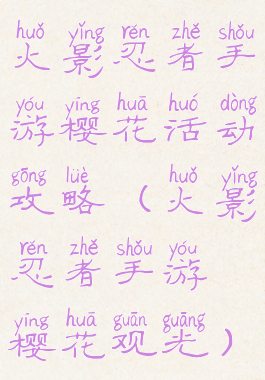 huǒ yǐng rěn zhě shǒu
火影忍者手
yóu yīng huā huó dòng
游樱花活动
gōng lüè huǒ yǐng
攻略（火影
rěn zhě shǒu yóu
忍者手游
yīng huā guān guāng
樱花观光）